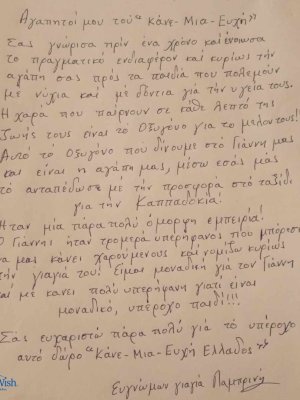 Αγαπητοί μου του "Κάνε-Μια-Ευχή"
Σας γνώρισα πρίν ένα χρόνο και ένοιωσα
το πραγματικό ενδιαφέρον και κυρίως την
αγάπη σας πρός τα παιδιά που πολεμούν
με νύχια και με δόντια για την υγεία τους.
Η χαρά που παίρνουν σε κάθε λεπτό της
ζωής τους είναι το Οξυγόνο για το μέλλον τους!
Αυτό το Οξυγόνο που δίνουμε στο Γιάννη μας
και είναι η αγάπη μας, μέσω εσάς μας
το ανταπέδωσε με την προσφορά στο ταξίδι
για την
Καππαδοκία!
Ήταν μία πάρα πολύ όμορφη εμπειρία!
Ο Γιάννης ήταν τρομερά υπερήφανος που μπόρεσε
να μας κάνει χαρούμενους και νομίζω κυρίως
την γιαγιά του! Είμαι μοναδική για τον Γιάννη
και με κάνει πολύ υπερήφανη γιατί είναι
μοναδικό, υπέροχο παιδί!!!
Σας ευχαριστώ πάρα πολύ για το υπέροχο
αυτό δώρο "Κάνε-Μια-Ευχή Ελλάδος"
Ευγνώμων γιαγιά Λαμπρινή
Wish